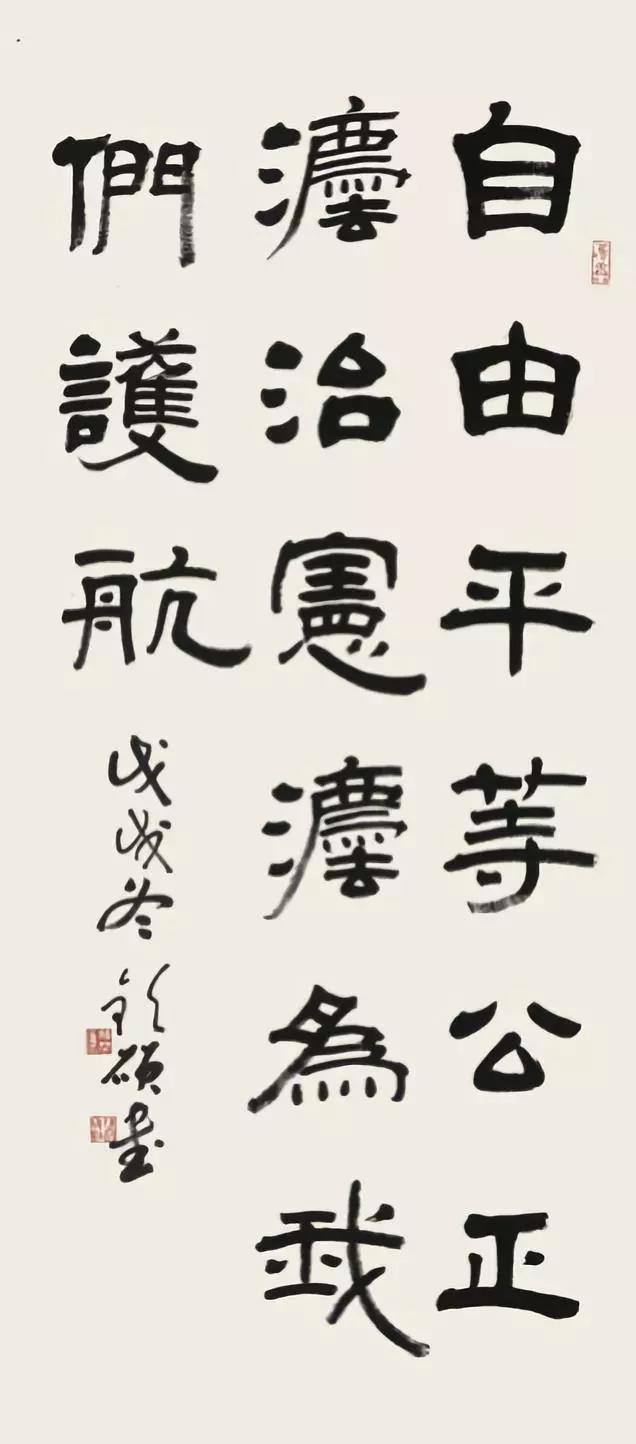 自由平等公正
灋治憲灋為我
們護航
戊戌冬
碩書